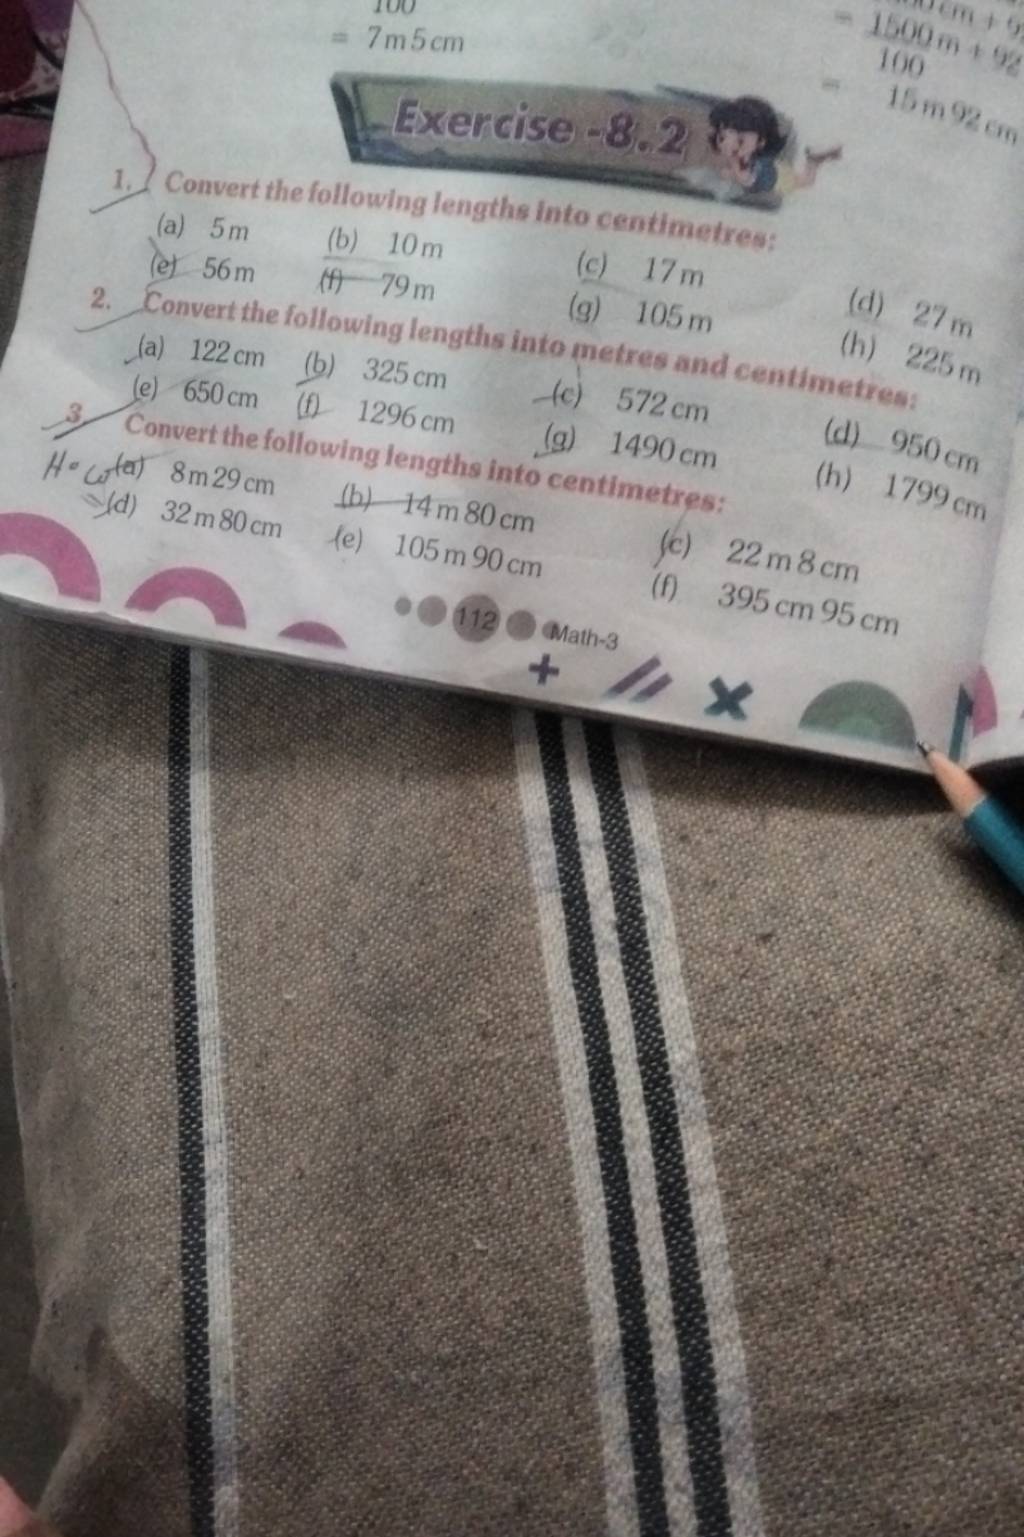 100
= 7 m 5 cm
= 1500 m + 92
100
= 15 m 92 cm
Exercise -8.2
1. Convert the following lengths into centimetres:
(a) 5 m (b) 10 m (c) 17 m (d) 27 m
(e) 56 m (f) 79 m (g) 105 m (h) 225 m
2. Convert the following lengths into metres and centimetres:
(a) 122 cm (b) 325 cm (c) 572 cm (d) 950 cm
(e) 650 cm (f) 1296 cm (g) 1490 cm (h) 1799 cm
3. Convert the following lengths into centimetres:
H.W (a) 8 m 29 cm (b) 14 m 80 cm (c) 22 m 8 cm
(d) 32 m 80 cm (e) 105 m 90 cm (f) 395 cm 95 cm
112 Math-3